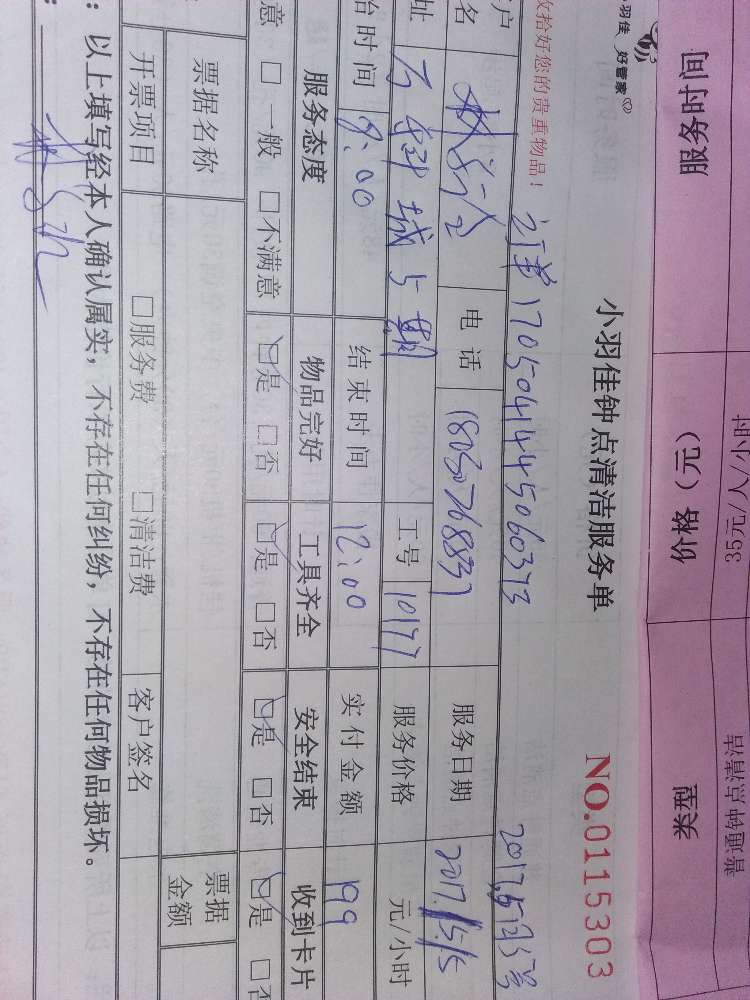 服务时间 价格（元） 类型
35元/人/小时 普通钟点清洁
小羽佳 好管家
小羽佳钟点清洁服务单 NO.0115303
收拾好您的贵重物品！ 订单
户名 电话 服务日期 2017.5.15
址 五期 工号 10177 服务价格 元/小时
始时间 9:00 结束时间 12:00 实付金额 199
服务态度 物品完好 工具齐全 安全结束 收到卡片
意 □一般 □不满意 ☑是 □否 ☑是 □否 ☑是 □否 ☑是 □否
票据名称 票据金额
开票项目 □服务费 □清洁费 客户签名
：以上填写经本人确认属实，不存在任何纠纷，不存在任何物品损坏。
：